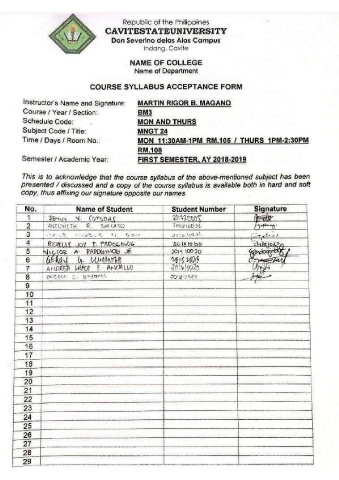 Republic of the Philippines
CAVITESTATEUNIVERSITY
Don Severino delas Alas Campus
Indang, Cavite
NAME OF COLLEGE
Name of Department
COURSE SYLLABUS ACCEPTANCE FORM
Instructor's Name and Signature: MARTIN RIGOR B. MAGANO
Course / Year / Section: BM3
Schedule Code: MON AND THURS
Subject Code / Title: MNGT 24
Time / Days / Room No.: MON 11:30AM-1PM RM.105 / THURS 1PM-2:30PM
RM.108
Semester / Academic Year: FIRST SEMESTER, AY 2018-2019
This is to acknowledge that the course syllabus of the above-mentioned subject has been
presented / discussed and a copy of the course syllabus is available both in hard and soft
copy, thus affixing our signature opposite our names
No. Name of Student Student Number Signature
1
2
3
4 JOY
5 VICTOR A.
6 G.
7 ANDREA
8
9
10
11
12
13
14
15
16
17
18
19
20
21
22
23
24
25
26
27
28
29